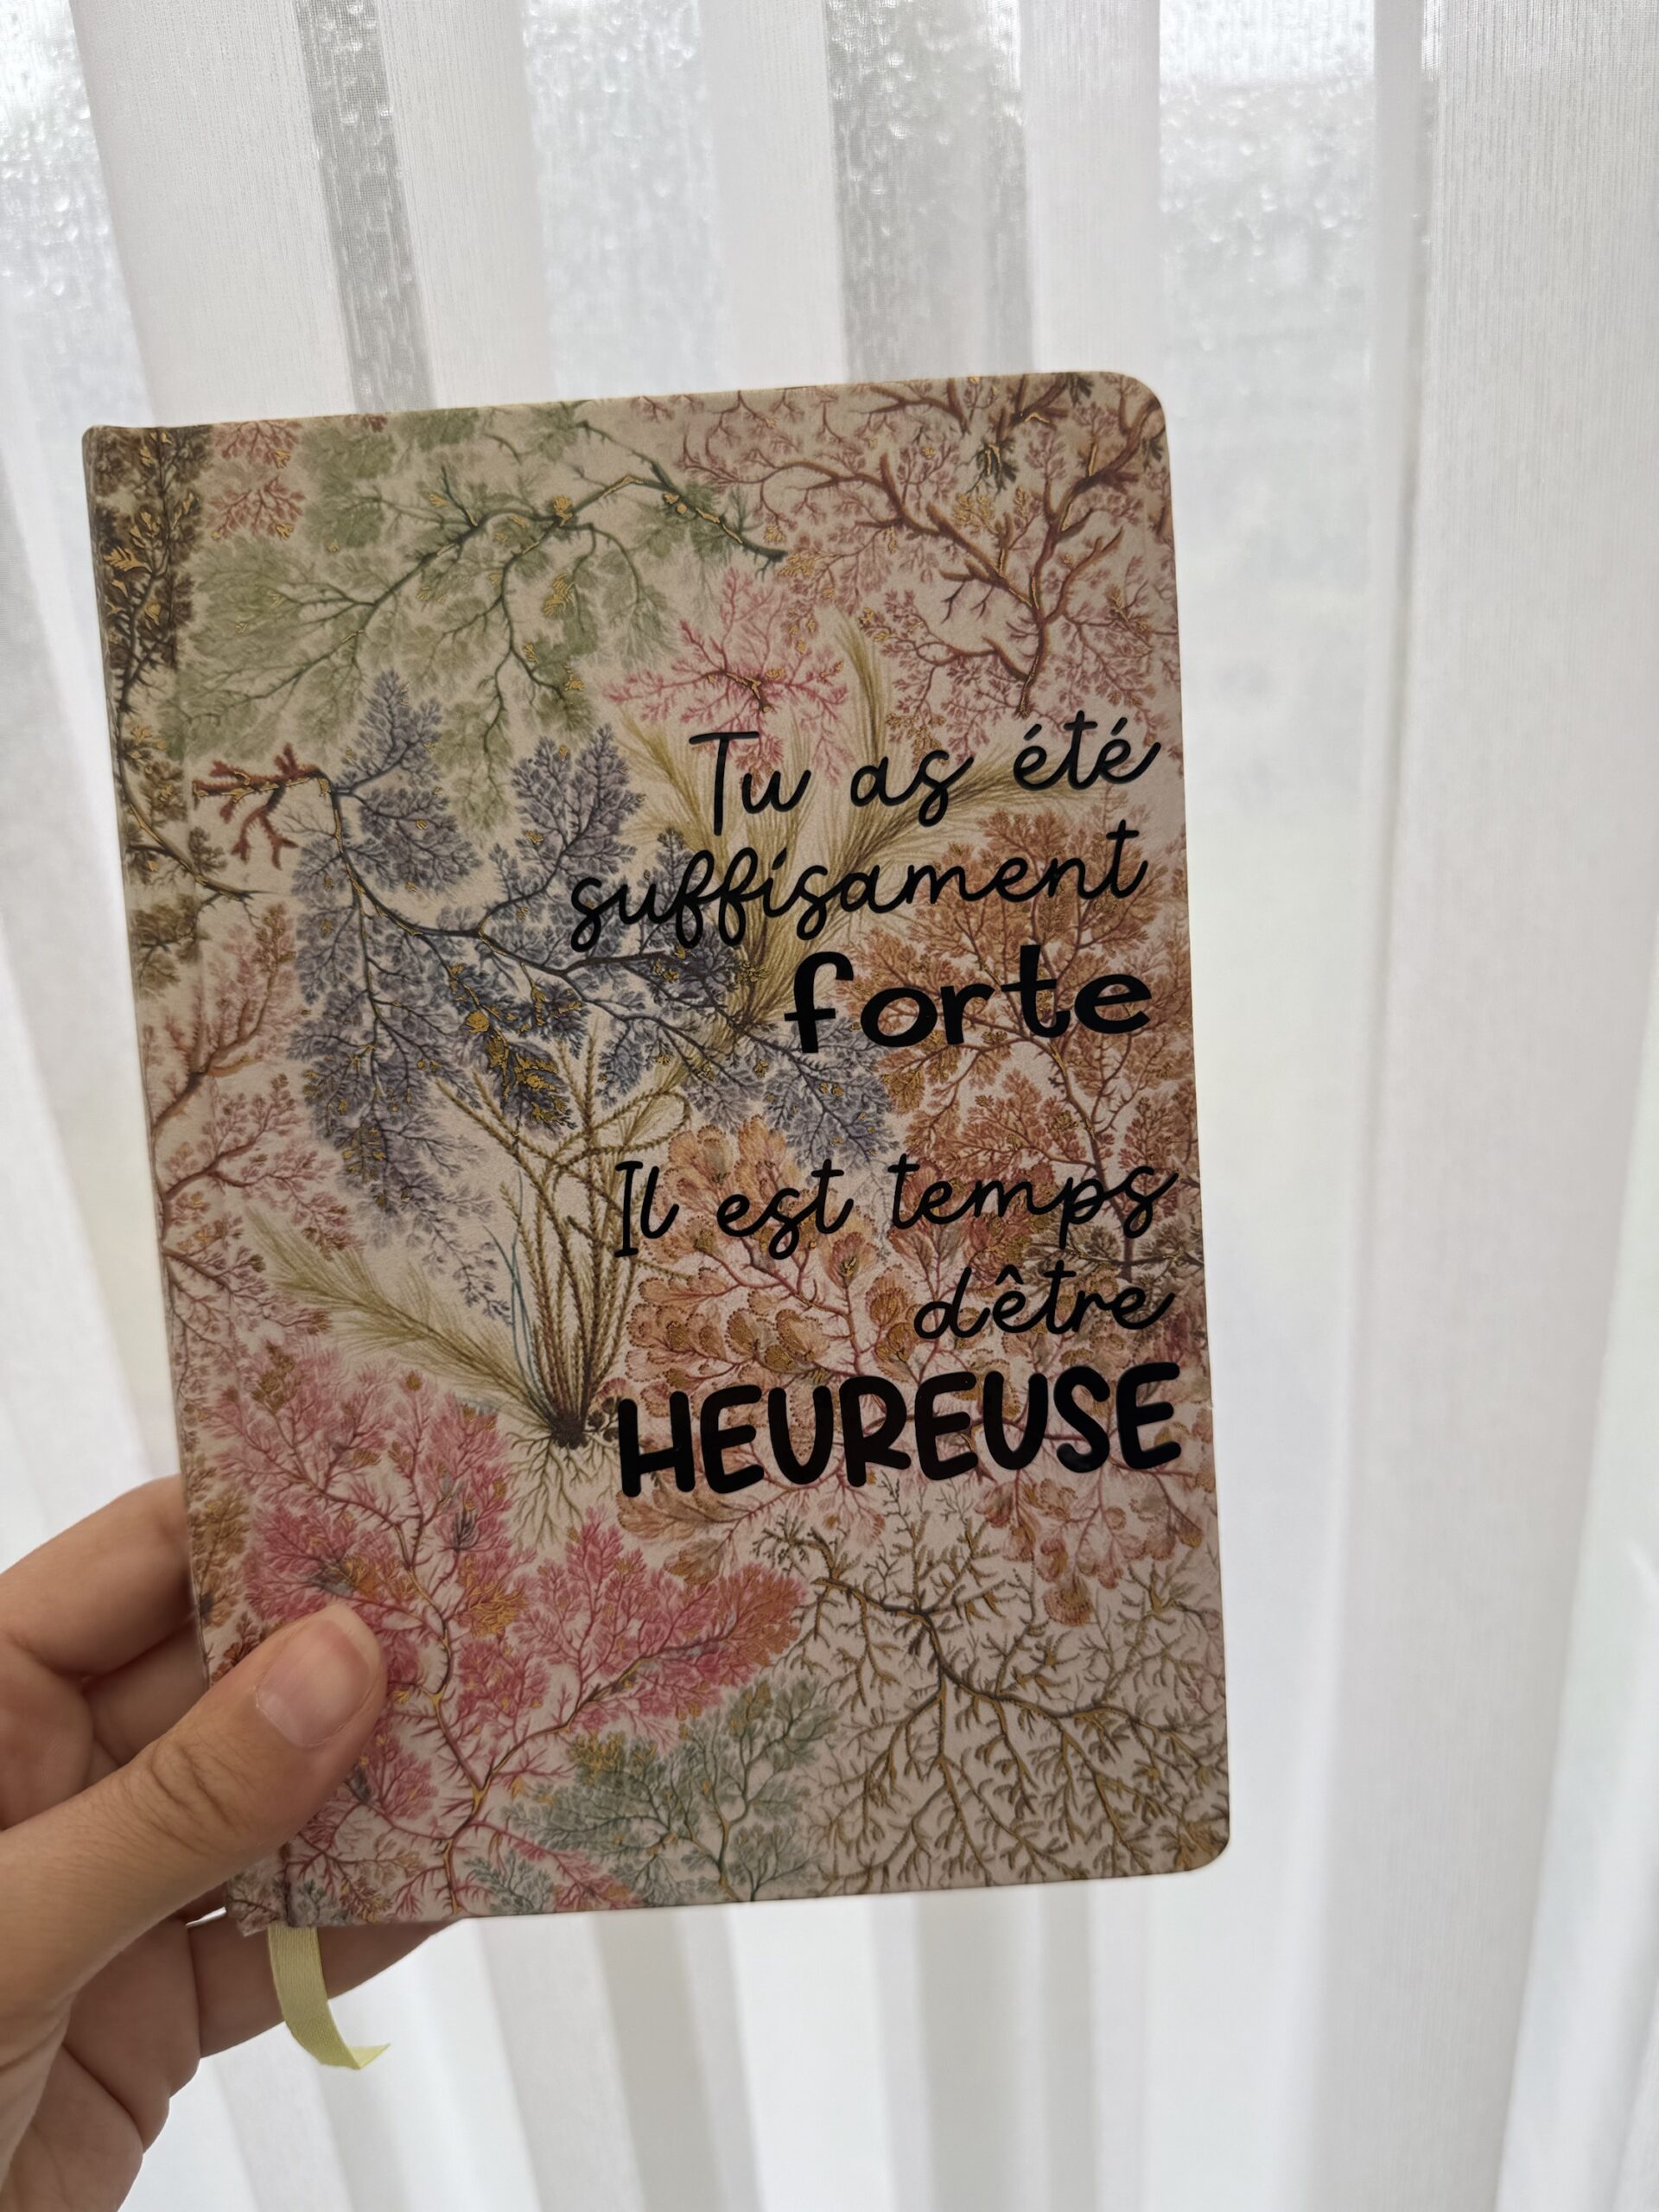 Tu as été
suffisament
forte
Il est temps
d'être
HEUREUSE